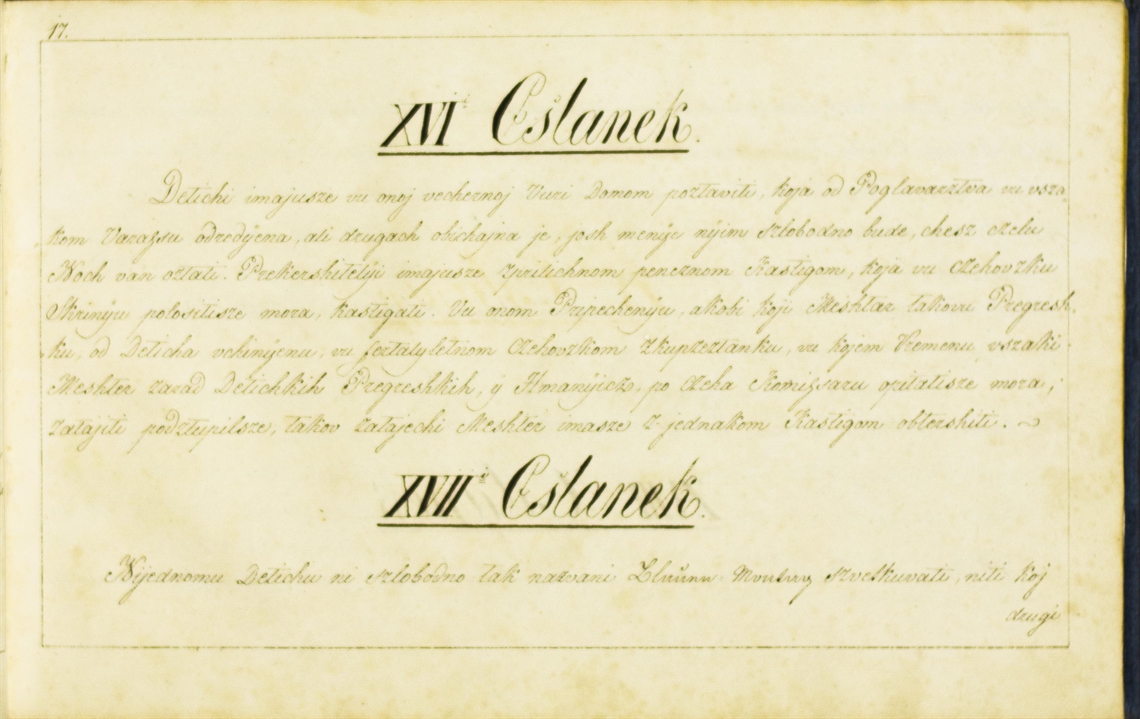 17.
XVI. Cslanek.
Detichi imajusze vu onoj vechernoj Vuri Domom poztaviti, koja od Poglavarztva vu vsza-
kom Varassu odredjena, ali drugach obichajna je, josh menye nyim szlobodno bude, chesz czelu
Noch van oztati. Prekershitelyi imajusze zprilichnom peneznom Kastigom, koja vu Czehovzku
Skrinyu polositisze mora, kastigati. Vu onom Pripechenyu, akobi koji Meshtar takovu Pregresh-
ku, od Deticha vchinyenu, vu fertalyletnom Czehovzkom Zkupzeztanku, vu kojem Vremenu vszaki
Meshter zarad Detichkih Pregreshkih, y Hmanyicz, po Czeha Komissaru zpitatisze mora,
Zatajiti podztupilsze, takov zatajechi Meshter imasze z-jednakom Kastigom obtershiti.
XVII. Cslanek.
Nijednomu Detichu ni szlobodno tak nazvani Blauen Montag szvetkuvati, niti koj
drugi